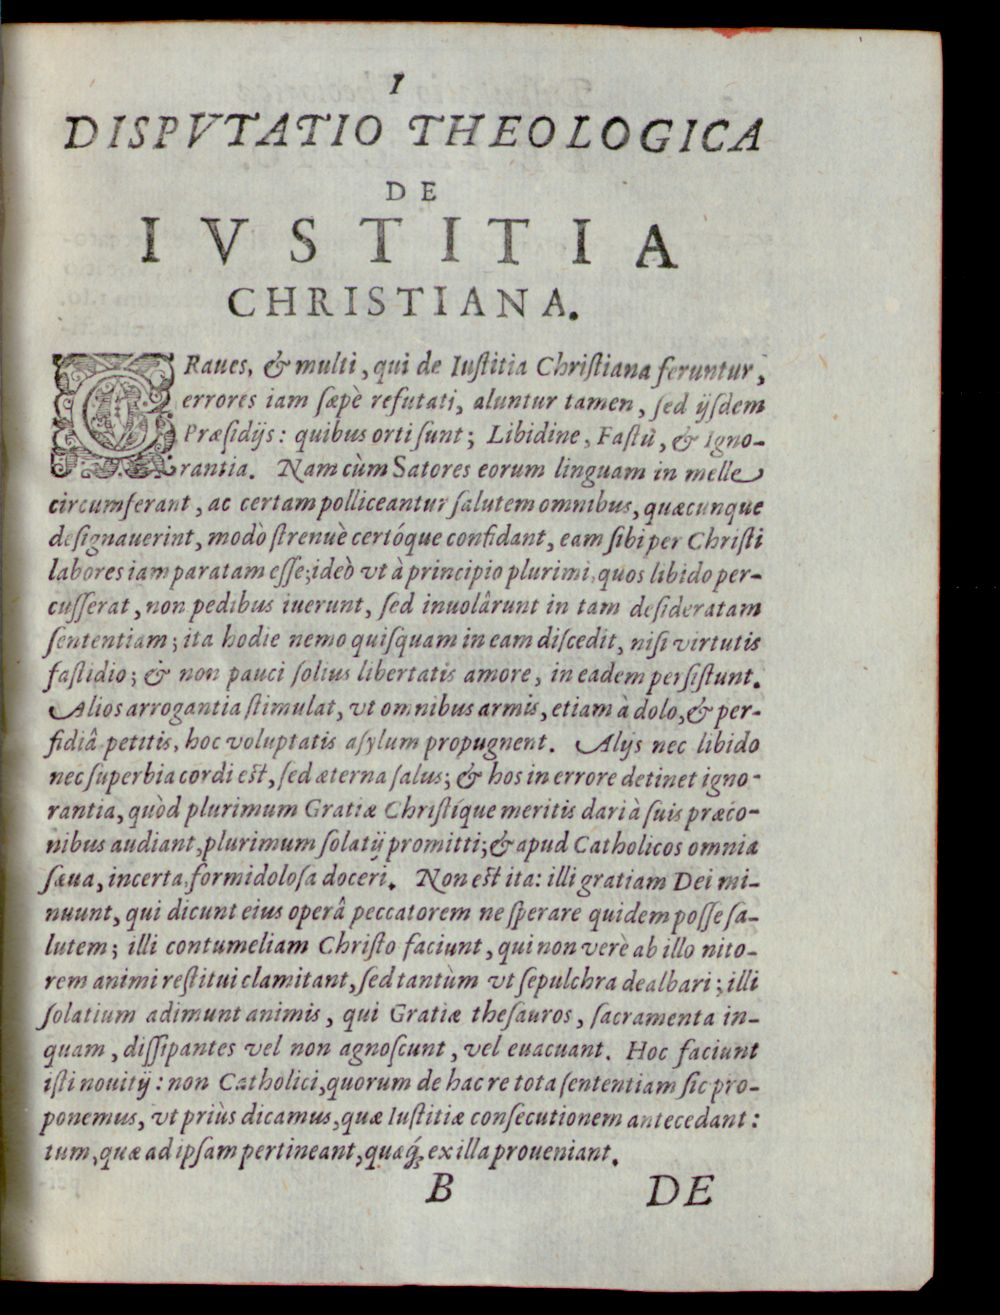 1
DISPVTATIO THEOLOGICA
DE
IVSTITIA
CHRISTIANA.
GRaues, & multi, qui de Iuſtitia Chriſtiana feruntur,
errores iam ſæpè refutati, aluntur tamen, ſed ijſdem
Præſidijs: quibus orti ſunt; Libidine, Faſtû, & igno-
rantia. Nam cùm Satores eorum linguam in melle
circumferant, ac certam polliceantur ſalutem omnibus, quæcunque
deſignauerint, modò ſtrenuè certóque confidant, eam ſibi per Chriſti
labores iam paratam eſſe; ideò vt à principio plurimi, quos libido per-
cuſſerat, non pedibus iuerunt, ſed inuolârunt in tam deſideratam
ſententiam; ita hodie nemo quiſquam in eam diſcedit, niſi virtutis
faſtidio; & non pauci ſolius libertatis amore, in eadem perſiſtunt.
Alios arrogantia ſtimulat, vt omnibus armis, etiam à dolo, & per-
fidiâ petitis, hoc voluptatis aſylum propugnent. Alijs nec libido
nec ſuperbia cordi eſt, ſed æterna ſalus; & hos in errore detinet igno-
rantia, quòd plurimum Gratiæ Chriſtíque meritis dari à ſuis præco-
nibus audiant, plurimum ſolatij promitti; & apud Catholicos omnia
ſæua, incerta, formidoloſa doceri. Non eſt ita: illi gratiam Dei mi-
nuunt, qui dicunt eius operâ peccatorem ne ſperare quidem poſſe ſa-
lutem; illi contumeliam Chriſto faciunt, qui non verè ab illo nito-
rem animi reſtitui clamitant, ſed tantùm vt ſepulchra dealbari; illi
ſolatium adimunt animis, qui Gratiæ theſauros, ſacramenta in-
quam, diſſipantes vel non agnoſcunt, vel euacuant. Hoc faciunt
iſti nouitij: non Catholici, quorum de hac re tota ſententiam ſic pro-
ponemus, vt priùs dicamus, quæ Iuſtitiæ conſecutionem antecedant:
tum, quæ ad ipſam pertineant, quæq́; ex illa proueniant.
B DE